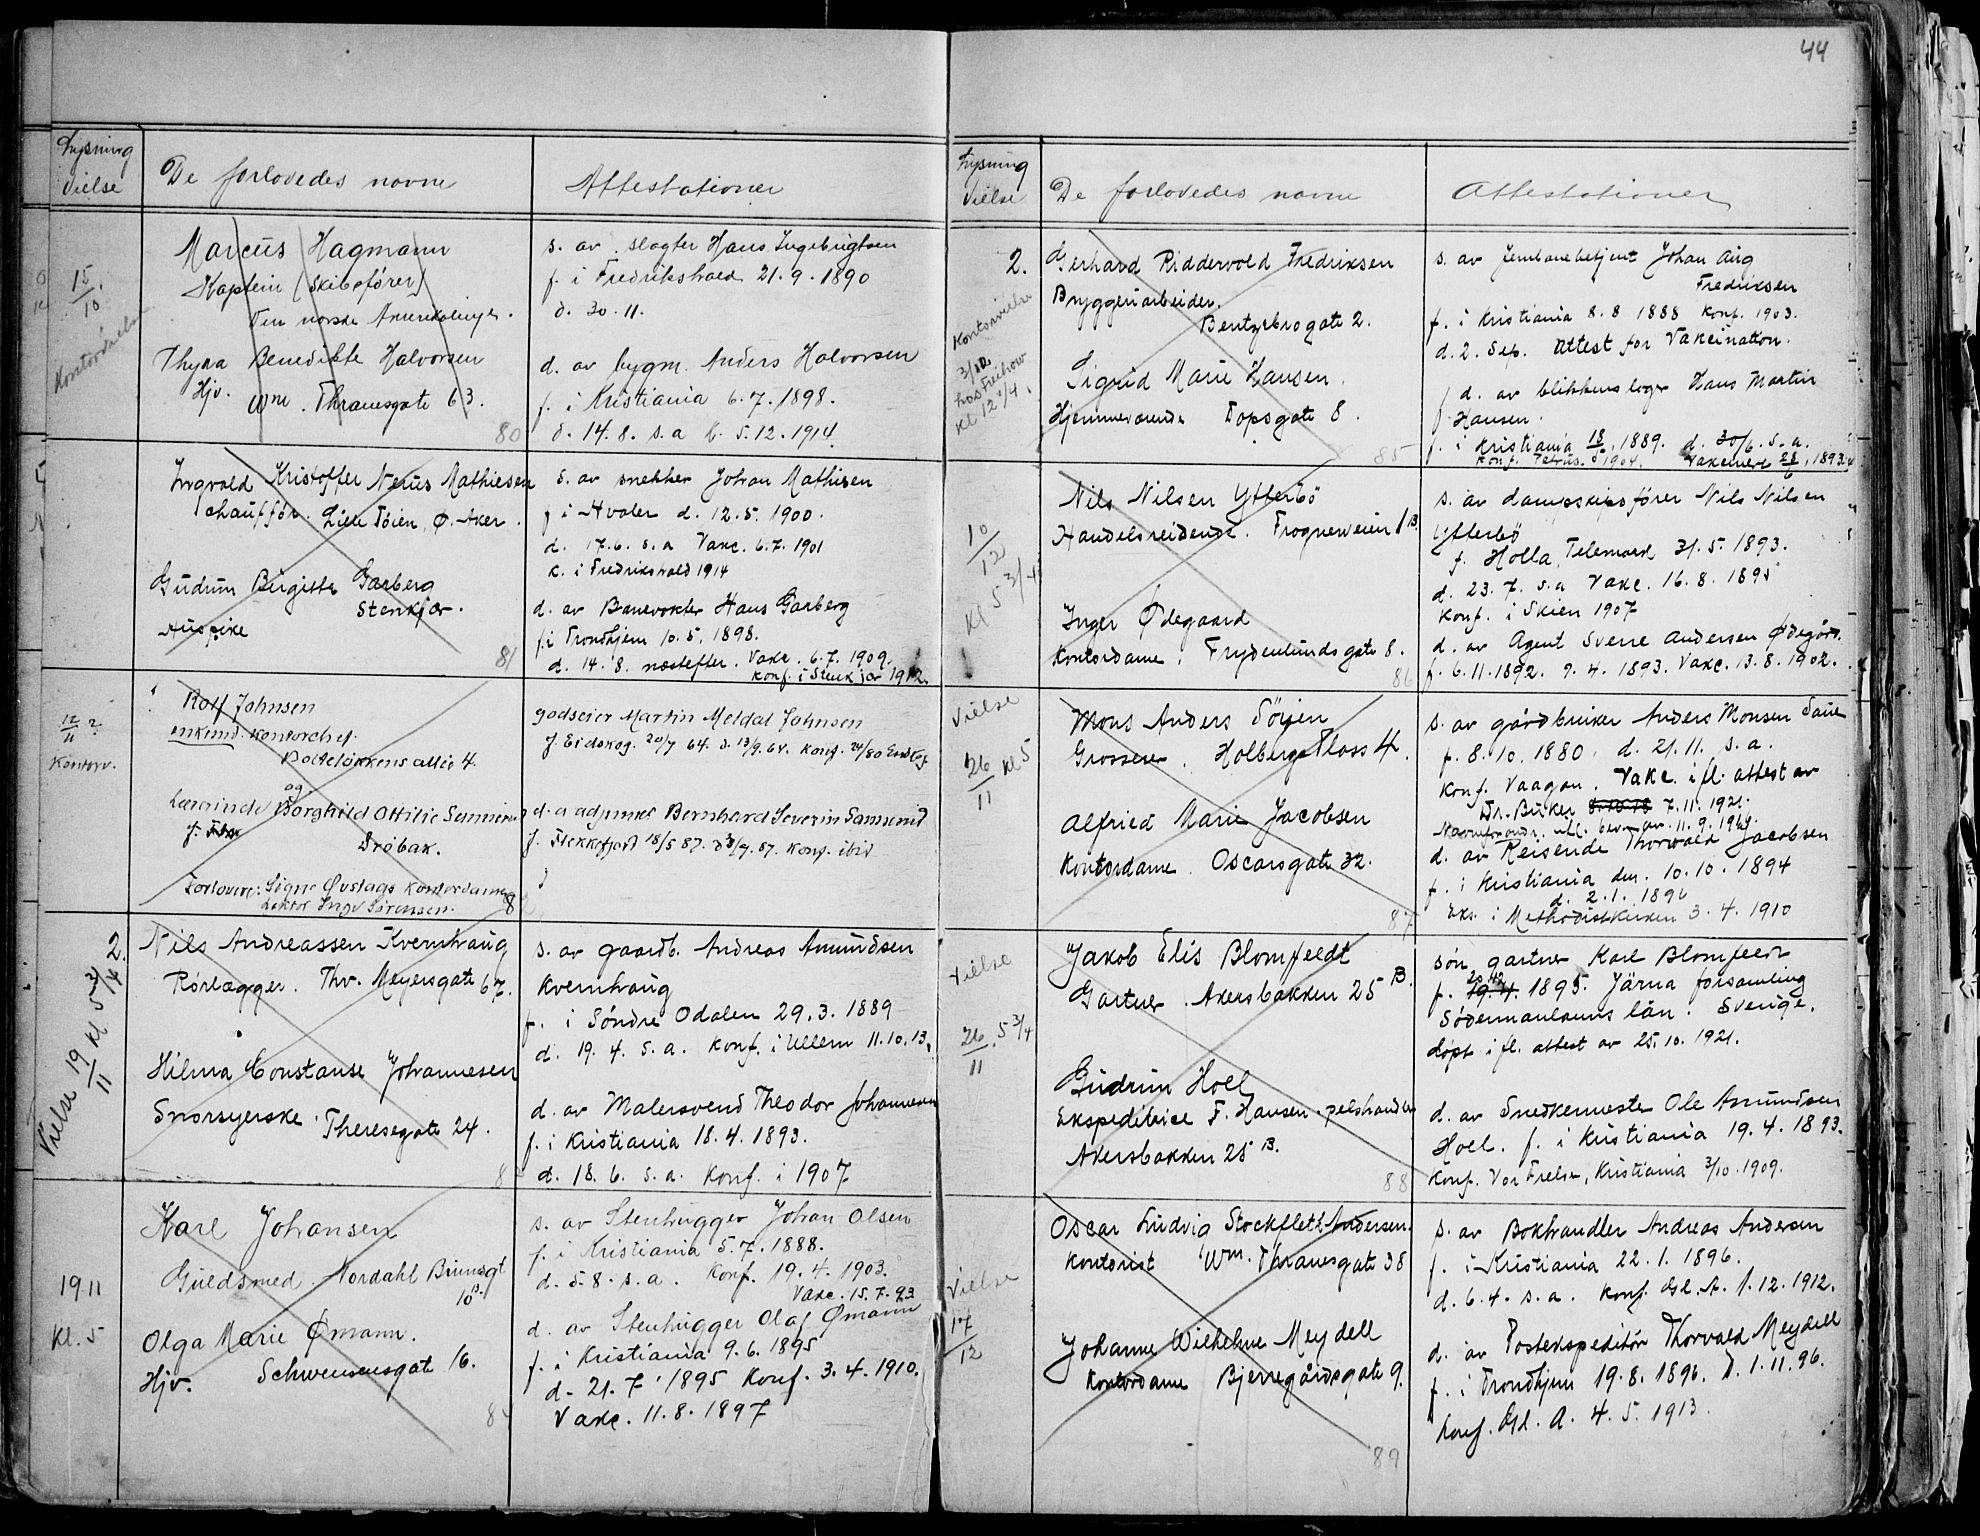 44
Lysning
Vielse
De forlovedes navne
Attestationer
15/10
Kontorvielse
Marcus Hagmann
Kaptein (skibsfører)
Den norske Amerikalinje.
Thyra Benedikte Halvorsen
Hjv. Wm. Thranesgate 63.
80
s. av slagter Hans Ingebrigtsen
f. i Fredrikshald 21.9.1890
d. 30.11.
d. av bygm. Anders Halvorsen
f. i Kristiania 6.7.1898.
d. 14.8. s.a k. 5.12.1914
Ingvald Kristoffer Nerius Mathiesen
Chauffør. Lille Tøien, Ø. Aker.
Gudrun Birgitte Garberg
Stenkjær.
Huspike
81
s. av snekker Johan Mathisen
f i Hvaler d. 12.5. 1900.
d. 17.6. s.a Vakc. 6.7. 1901
k. i Fredrikshald 1914
d. av Banevokter Hans Garberg
f. i Trondhjem 10.5. 1898.
d. 14.8. næstefter. Vakc. 6.7. 1909.
Konf. i Stenkjær 1912.
12/11 ?
Kontorv.
Rolf Johnsen
enkemd. kontorchef.
Bolteløkkens allé 4.
og
Lærerinde Borghild Ottilie
Drøbak.
Forlovere: Signe Øvstags Kontordame
Lektor Inge Sørensen.
godseier Martin Meldal Johnsen
f. Eidskog. 20/7 64. d. 13/9. 64. Konf. 24/80
d. a adjunkt Bernhard Severin
f. Flekkefjord 18/5 87. Konf. ibid
2.
Vielse 19/11 Kl 5 3/4
Nils Andreassen Kvernhaug
Rørlægger. Thv. Meyersgate 67.
Hilma Constanse Johannesen
Snorsyerske. Theresegate 24.
s. av gaardb. Andreas Amundsen
Kvernhaug
f. i Søndre Odalen 29.3. 1889
d. 19.4. s.a. Konf. i Ullern 11.10.13.
d. av Malersvend Theodor Johannesen
f. i Kristiania 18.4. 1893.
d. 18.6. s.a. Konf. i 1907
19 11
Kl. 5
Karl Johansen
Guldsmed. Nordahl Brunsgt
10 B.
Olga Marie Ømann.
Hjv. Schwensensgate 16.
s. av Stenhugger Johan Olsen
f. i Kristiania 5.7. 1888.
d. 5.8. s.a. Konf. 19.4. 1903.
Vakc. 15.7.93
d. av Stenhugger Olaf Ømann
f. i Kristiania 9.6. 1895
d. 21.7. 1895 Konf. 3.4.1910.
Vakc. 11.8.1897
Lysning
Vielse
De forlovedes navne
Attestationer
2.
Kontorvielse
Kl 12 1/4.
Gerhard Riddervold Fredriksen
Bryggeriarbeider.
Bentzebrogate 2.
Sigrid Marie Hansen.
Hjemmeværende Torpsgate 8.
85
s. av Jernbanebetjent Johan Aug
Fredriksen
f. i Kristiania 8.8 1888 Konf. 1903.
d. 2. Sep. Attest for Vakcination.
d. av blikkenslager Hans Martin
Hansen.
f. i Kristiania 18/ 1889. d. 30/6. s.a.
Konf. Petrus 1904. Vakcinert 1893
10/12
Kl 5 3/4
Nils Nilsen Ytterbø
Handelsreisende. Frognerveien 1 B.
Inger Ødegaard
Kontordame. Frydenlundsgate 8.
86
s. av dampskipsfører Nils Nilsen
Ytterbø
f. Holla, Telemark 31.5. 1893.
d. 23.7. s.a Vakc. 16.8. 1895
Konf. i Skien 1907
d. av Agent Sverre Andersen Ødegård.
f. 6.11.1892. 9.4. 1893. Vakc. 13.8.1902.
Vielse
26/11 Kl 5
Mons Anders
Grosserer. Holbergs Plass 4.
Alfried Marie Jacobsen
Kontordame. Oscarsgate 32.
87
s. av gårdbruker Anders Monsen
f. 8.10. 1880. d. 21.11. s.a.
Konf. Vaagan. Vakc. ifl. attest av
Dr. Bruker 7.11. 1921.
d. av Reisende Thorvald Jacobsen
f. i Kristiania den. 10.10. 1894
d. 2.1. 1896
Eks. i Methodistkirken 3.4. 1910
Vielse
26/11. 5 3/4
Jakob Elis Blomfeldt
Gartner. Akersbakken 25 B.
Gudrun Hoel
Ekspeditrice F. Hansen. pelshandler
Akersbakken 25 B.
88
søn gartner Karl Blomfeldt
f. 19.4. 1895. Järna forsamling
Södermanlands län. Sverige.
døpt ifl. attest av 25.10. 1921.
d. av Snedkermester Ole Amundsen
Hoel. f. i Kristiania 19.4. 1893.
Konf. Vor Frelser, Kristiania 3/10.1909.
Vielse
17/12
Oscar Ludvig Stockfleth Andersen.
Kontorist Wm. Thranesgate 38
Johanne Wilhelmine Meydell
Kontordame Bjerregårdsgate 9.
89
s. av Bokhandler Andreas Andersen
f. i Kristiania 22.1. 1896.
d. 6.4. s.a. Konf. Gl. A. 1.12. 1912.
d. av Postekspeditør Thorvald Meydell
f. i Trondhjem 19.8. 1896. D. 1.11.96.
Konf. Gl. A. 4.5. 1913.